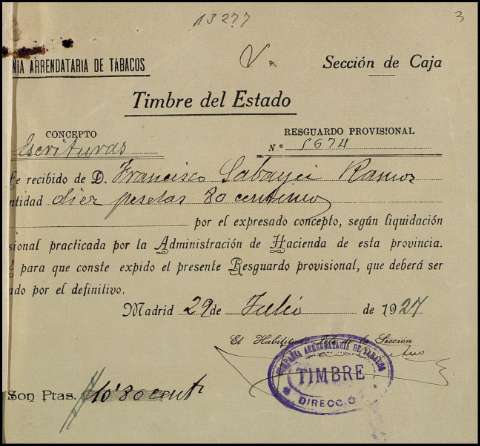 13277
3
ÑIA ARRENDATARIA DE TABACOS
Sección de Caja
Timbre del Estado
CONCEPTO
RESGUARDO PROVISIONAL
Escrituras
N.º 5674
recibido de D. Francisco Ramos
ntidad diez pesetas 80 centimos
por el expresado concepto, según liquidación
sional practicada por la Administración de Hacienda de esta provincia.
para que conste expido el presente Resguardo provisional, que deberá ser
ado por el definitivo.
Madrid 29 de Julio de 1927
El la Sección
COMPAÑIA ARRENDATARIA DE TABACOS
TIMBRE
DIRECCIO
Son Ptas. 10'80 cent